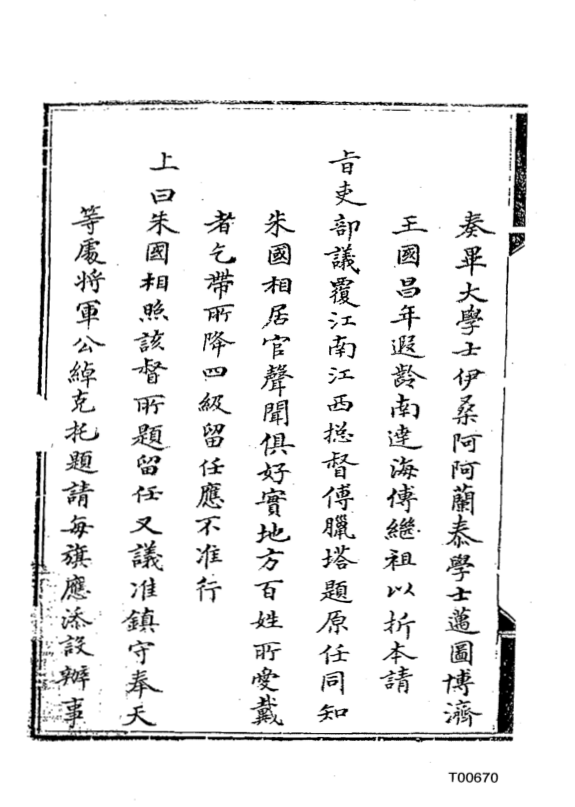 奏畢大學士伊桑阿阿蘭泰學士邁圖博濟
王國昌年遐齡南達海傅繼祖以折本請
旨吏部議覆江南江西總督傅臘塔題原任同知
朱國相居官聲聞俱好實地方百姓所愛戴
者乞帶所降四級留任應不准行
上曰朱國相照該督所題留任又議准鎮守奉天
等處將軍公綽克托題請每旗應添設辦事
T00670